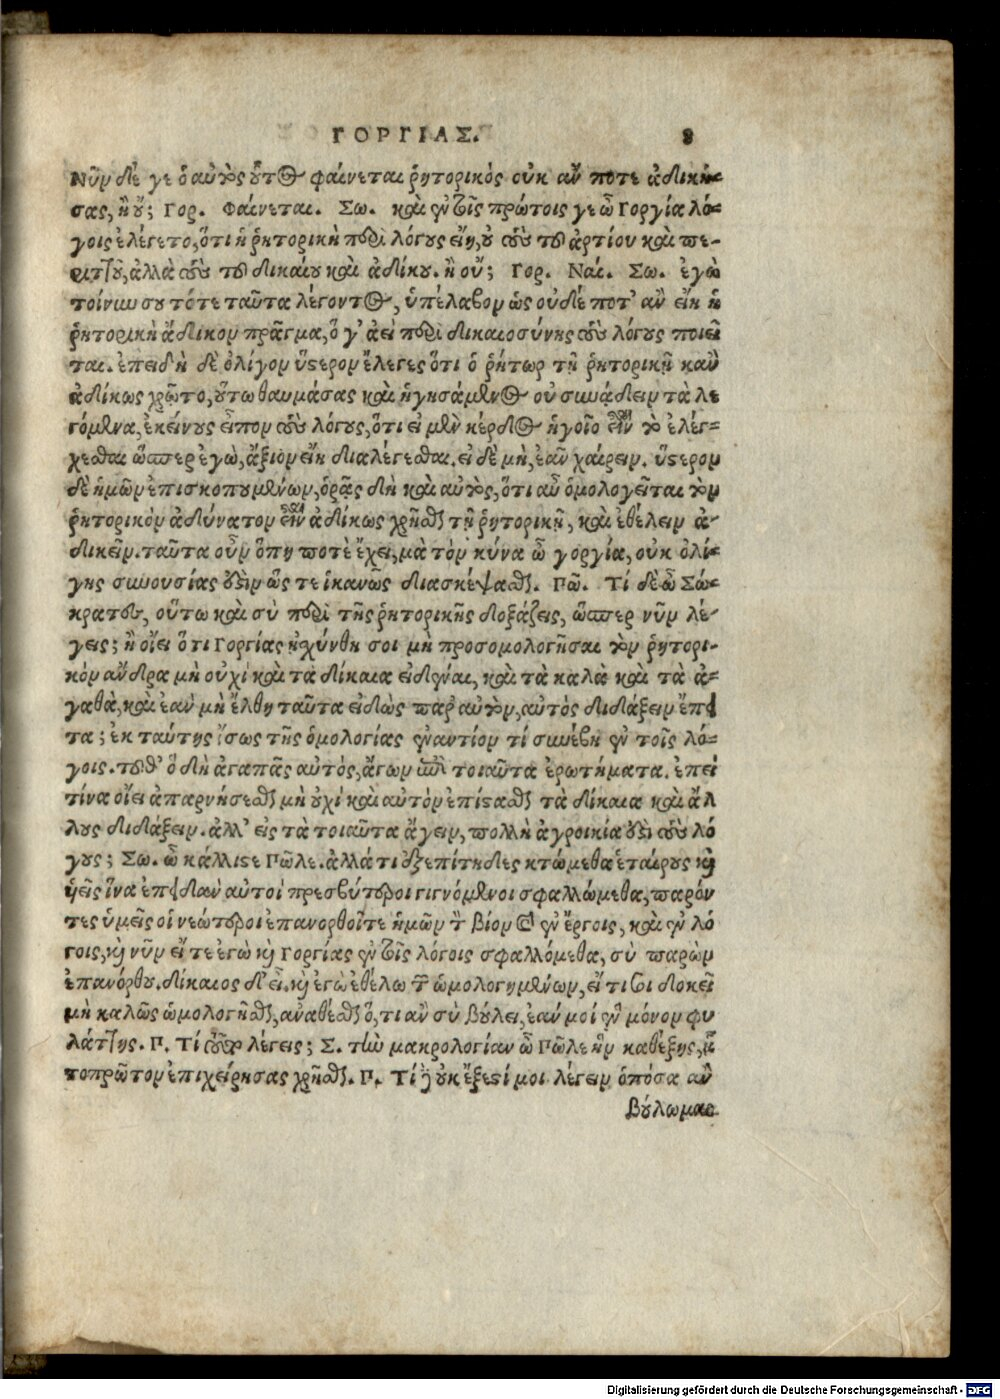 ΓΟΡΓΙΑΣ. 8
Νῦν δέ γε ὁ αὐτὸς οὗτος φαίνεται ῥητορικὸς οὐκ ἄν ποτε ἀδική-
σας, ἢ οὔ; Γορ. Φαίνεται. Σω. καὶ ἐν τοῖς πρώτοις γε ὦ Γοργία λό-
γοις ἐλέγετο, ὅτι ἡ ῥητορικὴ περὶ λόγους εἴη, οὐ τοὺς τοῦ ἀρτίου καὶ πε-
ριττοῦ, ἀλλὰ τοὺς τοῦ δικαίου καὶ ἀδίκου. ἢ οὔ; Γορ. Ναί. Σω. ἐγὼ
τοίνυν σου τότε ταῦτα λέγοντος, ὑπέλαβον ὡς οὐδέ ποτ' ἂν εἴη ἡ
ῥητορικὴ ἄδικον πρᾶγμα, ὅ γ' ἀεὶ περὶ δικαιοσύνης τοὺς λόγους ποιεῖ
ται. ἐπειδὴ δὲ ὀλίγον ὕστερον ἔλεγες ὅτι ὁ ῥήτωρ τῇ ῥητορικῇ κἂν
ἀδίκως χρῷτο, οὕτω θαυμάσας καὶ ἡγησάμενος οὐ συνᾴδειν τὰ λε
γόμενα, ἐκείνους εἶπον τοὺς λόγους, ὅτι εἰ μὲν κέρδος ἡγοῖο εἶναι τὸ ἐλέγ-
χεσθαι ὥσπερ ἐγὼ, ἄξιον εἴη διαλέγεσθαι. εἰ δὲ μὴ, ἐᾶν χαίρειν. ὕστερον
δὲ ἡμῶν ἐπισκοπουμένων, ὁρᾷς δὴ καὶ αὐτὸς, ὅτι αὖ ὁμολογεῖται τὸν
ῥητορικὸν ἀδύνατον εἶναι ἀδίκως χρῆσθαι τῇ ῥητορικῇ, καὶ ἐθέλειν ἀ-
δικεῖν. ταῦτα οὖν ὅπη ποτὲ ἔχει, μὰ τὸν κύνα ὦ γοργία, οὐκ ὀλί-
γης συνουσίας ἐστὶν ὥς τε ἱκανῶς διασκέψασθαι. Πῶ. Τί δὲ ὦ Σώ-
κρατες, οὕτω καὶ σὺ περὶ τῆς ῥητορικῆς δοξάζεις, ὥσπερ νῦν λέ-
γεις; ἢ οἴει ὅτι Γοργίας ᾐσχύνθη σοι μὴ προσομολογῆσαι τὸν ῥητορι-
κὸν ἄνδρα μὴ οὐχὶ καὶ τὰ δίκαια εἰδέναι, καὶ τὰ καλὰ καὶ τὰ ἀ-
γαθὰ, καὶ ἐὰν μὴ ἔλθῃ ταῦτα εἰδὼς παρ αὐτὸν, αὐτὸς διδάξειν ἔπει
τα; ἐκ ταύτης ἴσως τῆς ὁμολογίας ἐναντίον τί συνέβη ἐν τοῖς λό-
γοις. τοῦθ' ὃ δὴ ἀγαπᾷς αὐτὸς, ἄγων ἐπὶ τοιαῦτα ἐρωτήματα. ἐπεὶ
τίνα οἴει ἀπαρνήσεσθαι μὴ οὐχὶ καὶ αὐτὸν ἐπίστασθαι τὰ δίκαια καὶ ἄλ
λους διδάξειν. ἀλλ' εἰς τὰ τοιαῦτα ἄγειν, πολλὴ ἀγροικία ἐστὶ τοὺς λό
γους; Σω. ὦ κάλλιστε Πῶλε. ἀλλά τι ἐξεπίτηδες κτώμεθα ἑταίρους καὶ
ὑεῖς ἵνα ἐπειδὰν αὐτοὶ πρεσβύτεροι γιγνόμενοι σφαλλώμεθα, παρόν
τες ὑμεῖς οἱ νεώτεροι ἐπανορθοῖτε ἡμῶν τὸν βίον καὶ ἐν ἔργοις, καὶ ἐν λό
γοις, καὶ νῦν εἴ τε ἐγὼ καὶ Γοργίας ἐν τοῖς λόγοις σφαλλόμεθα, σὺ παρὼν
ἐπανόρθου. δίκαιος δ' εἶ. καὶ ἐγὼ ἐθέλω τῶν ὡμολογημένων, εἴ τι σοι δοκεῖ
μὴ καλῶς ὡμολογῆσθαι, ἀναθέσθαι ὅ, τι ἂν σὺ βούλει, ἐάν μοι ἓν μόνον φυ
λάττῃς. Π. Τί τοῦτο λέγεις; Σ. τὴν μακρολογίαν ὦ Πῶλε ἣν καθέξῃς, ᾗ
τοπρῶτον ἐπιχείρησας χρῆσθαι. Π. Τί δὲ οὐκ ἔξεστί μοι λέγειν ὁπόσα ἂν
βούλωμαι